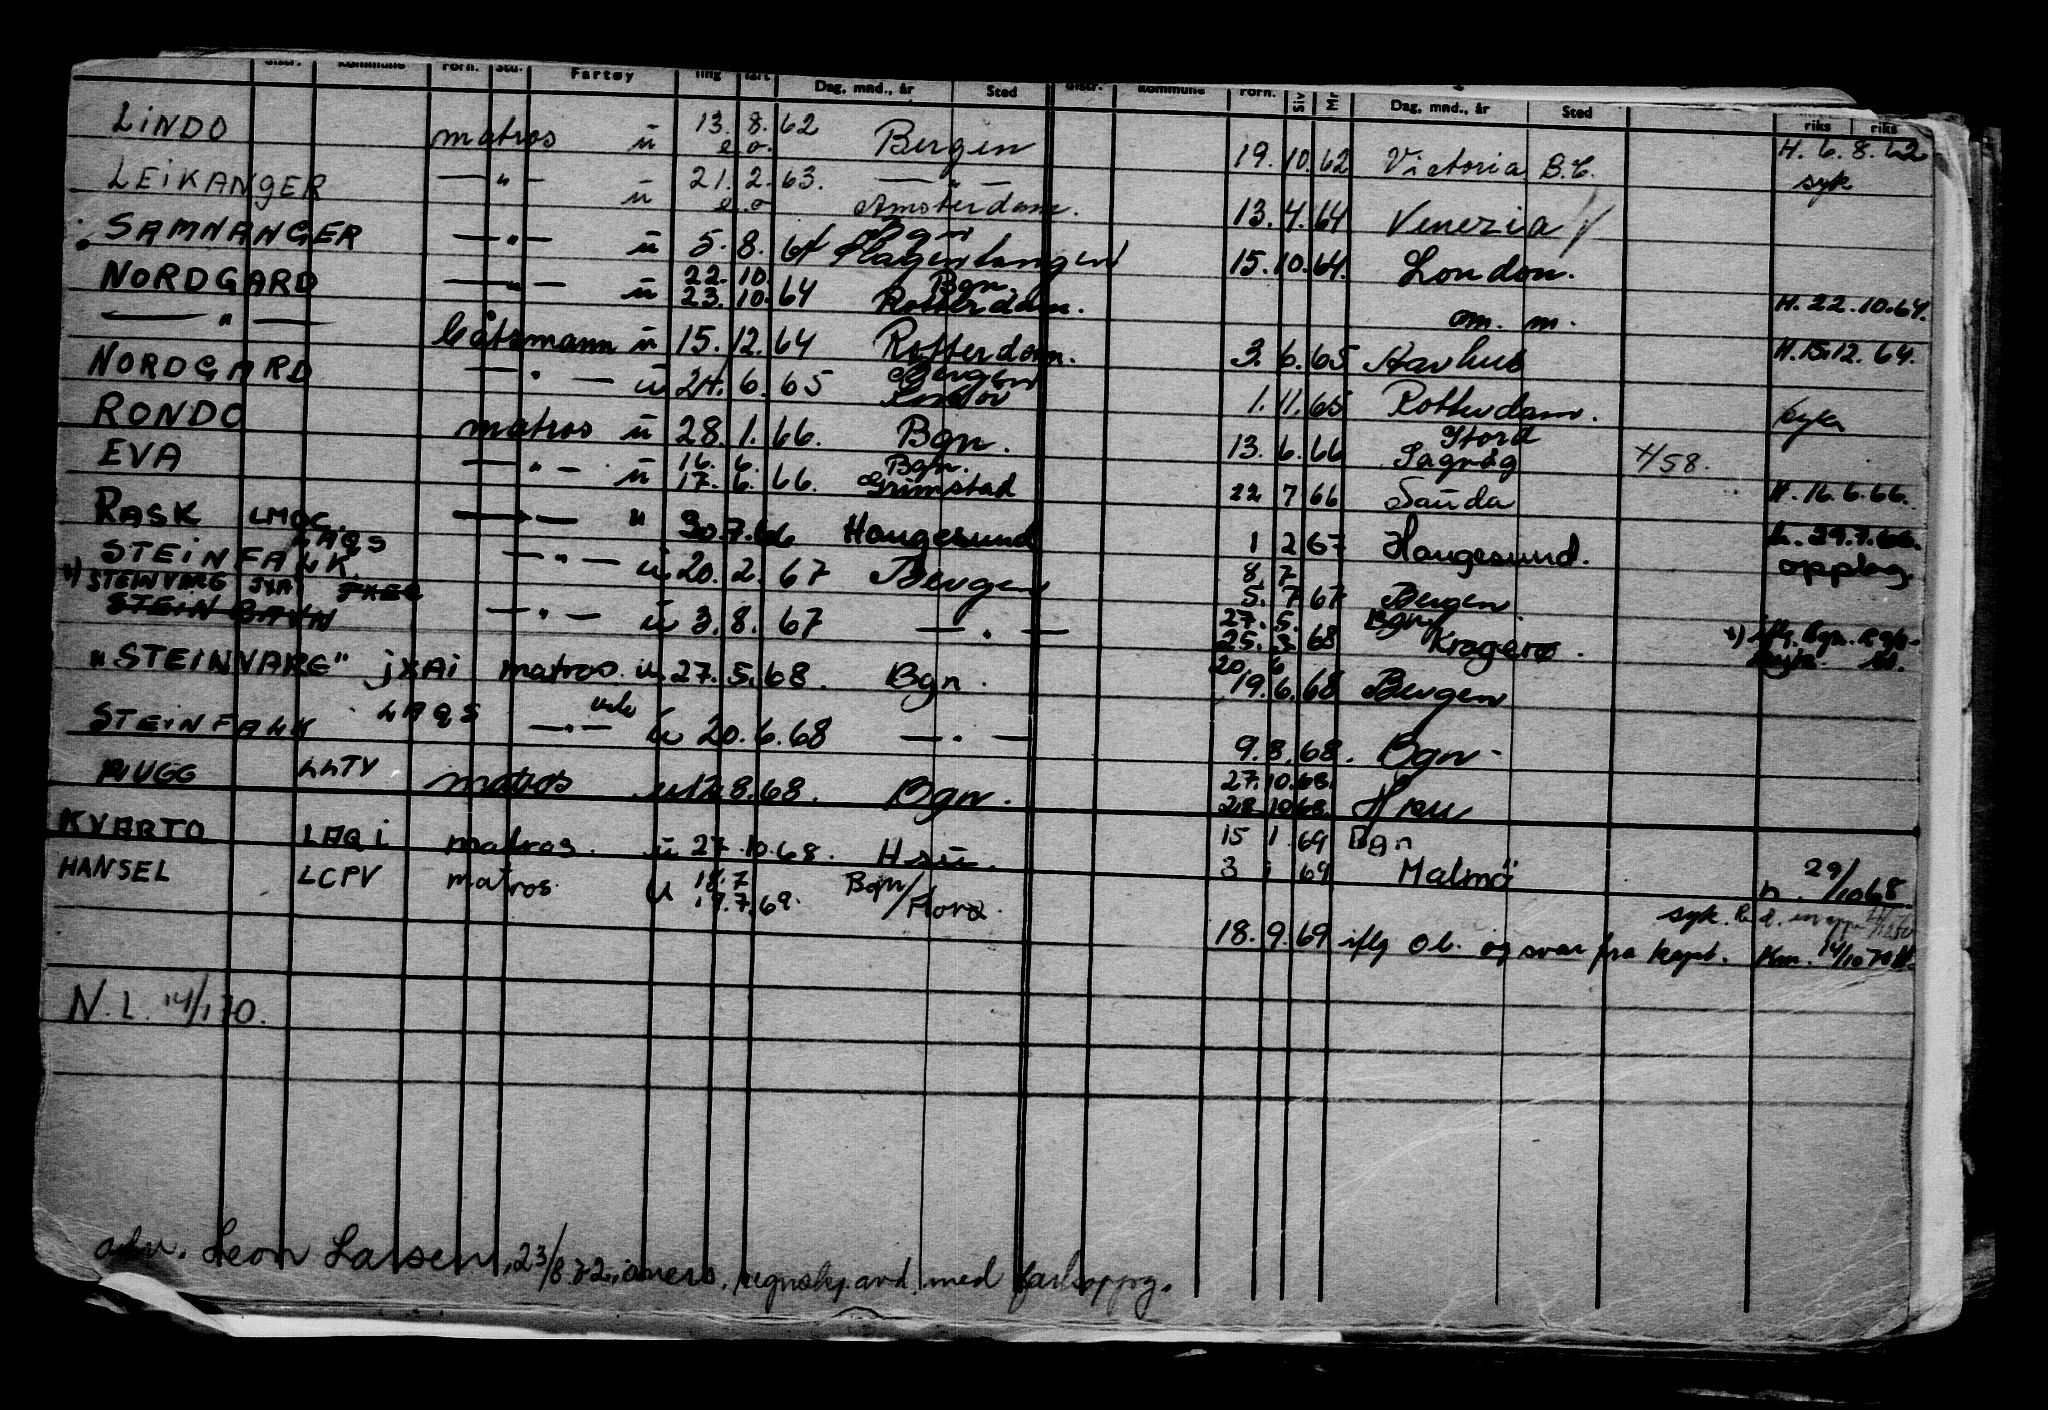 distr. Kommune Forn. Std. Fartøy ling fart Dag, mnd., år Sted distr. Kommune Forn. Siv Mr Dag, mnd., år Sted riks riks
LINDO matros ü 13. 8. 62 e.o. Bergen 19. 10. 62 Victoria B.C. H. 6. 8. 62 syk
LEIKANGER — " — ü 21. 2. 63. e.o — " — Amsterdam. 13. 4. 64 Venezia
SAMNANGER — " — ü 5. 8. 64 Bgn Slagentangen 15. 10. 64. London.
NORDGARD — " — ü 22. 10. 23. 10. 64 Bgn. Rotterdam. om. m. H. 22.10.64.
— " — båtsmann ü 15. 12. 64 Rotterdam. 3. 6. 65 Aarhus H. 15.12. 64.
NORDGARD — " — ü 24. 6. 65 Bergen 1. 11. 65 Rotterdam. syk
RONDO matros ü 28. 1. 66. Bgn. 13. 6. 66 Stord Sagvåg H/58.
EVA — " — ü 16. 6. 17. 6. 66. Bgn. Grimstad 22 7 66 Sauda H. 16. 6. 66.
RASK LMQC. — " — " 30.7.66 Haugesund 1 2 67 Haugesund. h. 29.7.66. opplag.
STEINFALK LAQS — " — ü 20. 2. 67 Bergen 8. 7 5. 7 67 Bergen
x) STEINVARG JXAI
STEIN BAVN — " — ü 3. 8. 67 — " — 27. 5. 25. 3. 68 Bgn/ Kragerø. x) iflg. Bgn.
"STEINVARG" jXAi matros. ü 27. 5. 68. Bgn. 20. 6 19. 6. 68 Bergen
STEINFALK LAQS — " — ü 20. 6. 68 — " — 9. 8. 68. Bgn
RUGG LLTV matros ü 12.8.68. Bgn. 27.10.68. 28.10.68. Hsu
KVARTO LAQI matros. ü 27.10.68. Hsu. 15 1. 69 Bgn
HANSEL LCPV matros. ü 18.7 19.7.69. Bgn/Florø. 3 1 69 Malmö h. 29/10 68.
syk.
18. 9. 69 iflg Ob. og svar fra kapt. Km. 14/10 70 H.
N. L. 14/1 70.
adv. Leon Larsen, 23/8 72, regnskp. avd. med fartsoppg.